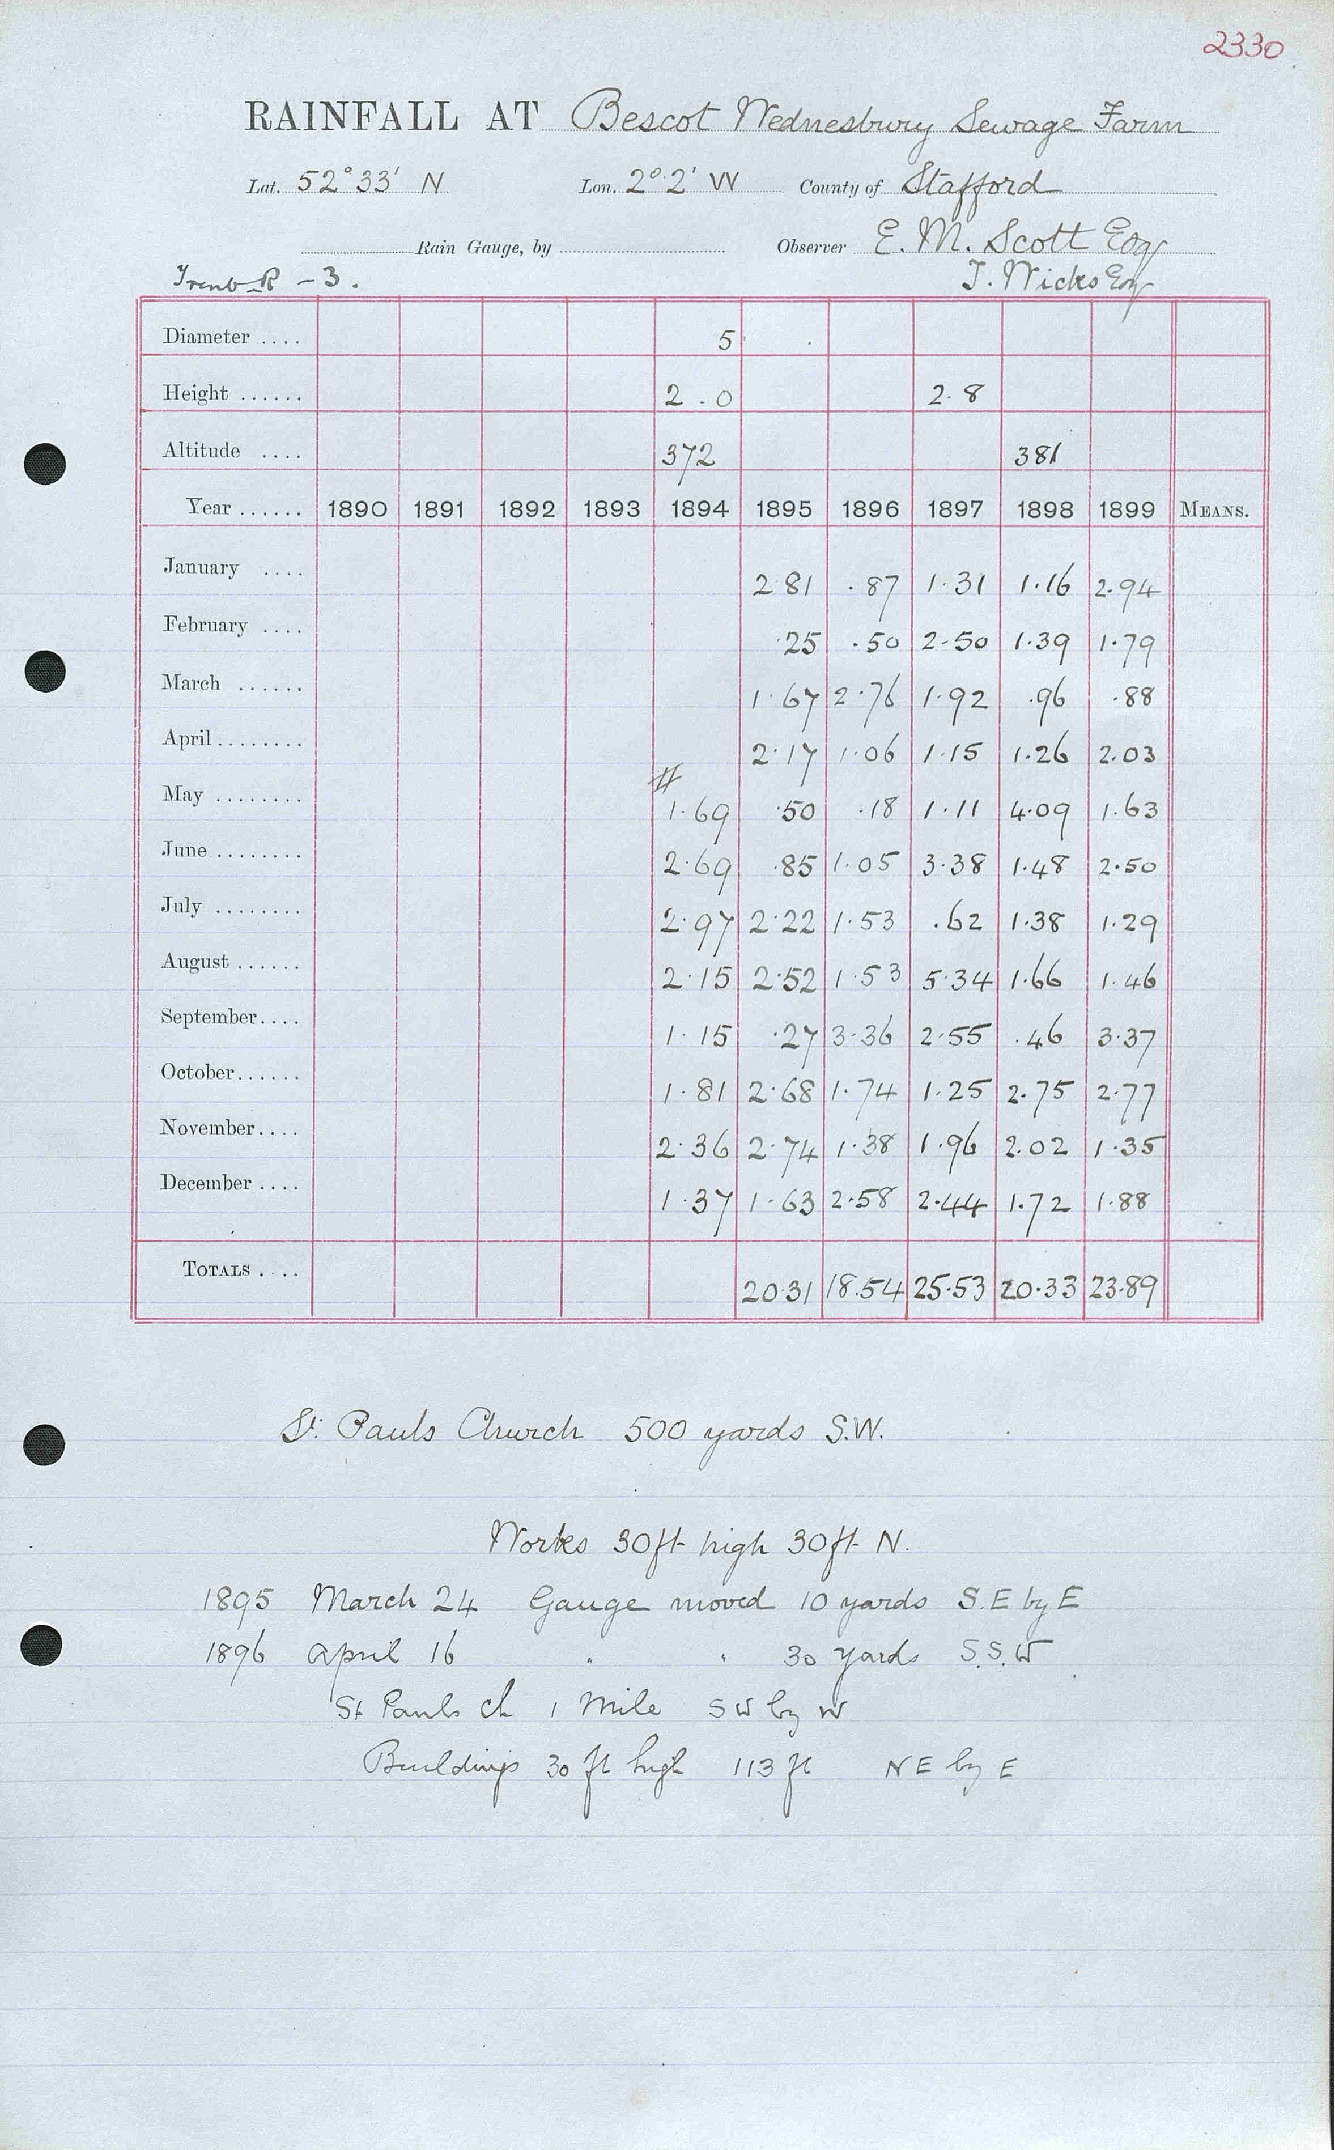 2330
RAINFALL AT Bescot Wednesbury Sewage Farm
Lat. 52° 33' N Lon. 2° 2' W County of Stafford
Rain Gauge, by Observer E. M. Scott Esq
Trent R - 3. T. Wicks Esq
Diameter .... 5
Height ...... 2.0 2.8
Altitude .... 372 381
Year ...... 1890 1891 1892 1893 1894 1895 1896 1897 1898 1899 MEANS.
January .... 2.81 .87 1.31 1.16 2.94
February .... .25 .50 2.50 1.39 1.79
March ...... 1.67 2.76 1.92 .96 .88
April ........ 2.17 1.06 1.15 1.26 2.03
May ........ # 1.69 .50 .18 1.11 4.09 1.63
June ........ 2.69 .85 1.05 3.38 1.48 2.50
July ........ 2.97 2.22 1.53 .62 1.38 1.29
August ...... 2.15 2.52 1.53 5.34 1.66 1.46
September.... 1.15 .27 3.36 2.55 .46 3.37
October...... 1.81 2.68 1.74 1.25 2.75 2.77
November.... 2.36 2.74 1.38 1.96 2.02 1.35
December .... 1.37 1.63 2.58 2.44 1.72 1.88
TOTALS .... 20.31 18.54 25.53 20.33 23.89
St. Pauls Church 500 yards S.W.
Works 30ft high 30ft N.
1895 March 24 Gauge moved 10 yards S.E by E
1896 April 16 " " 30 yards S.S.W
St Pauls Ch 1 Mile SW by W
Buildings 30 ft high 113 ft NE by E